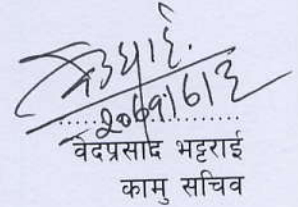 २०७१।६।३
वेदप्रसाद भट्टराई
कामु सचिव